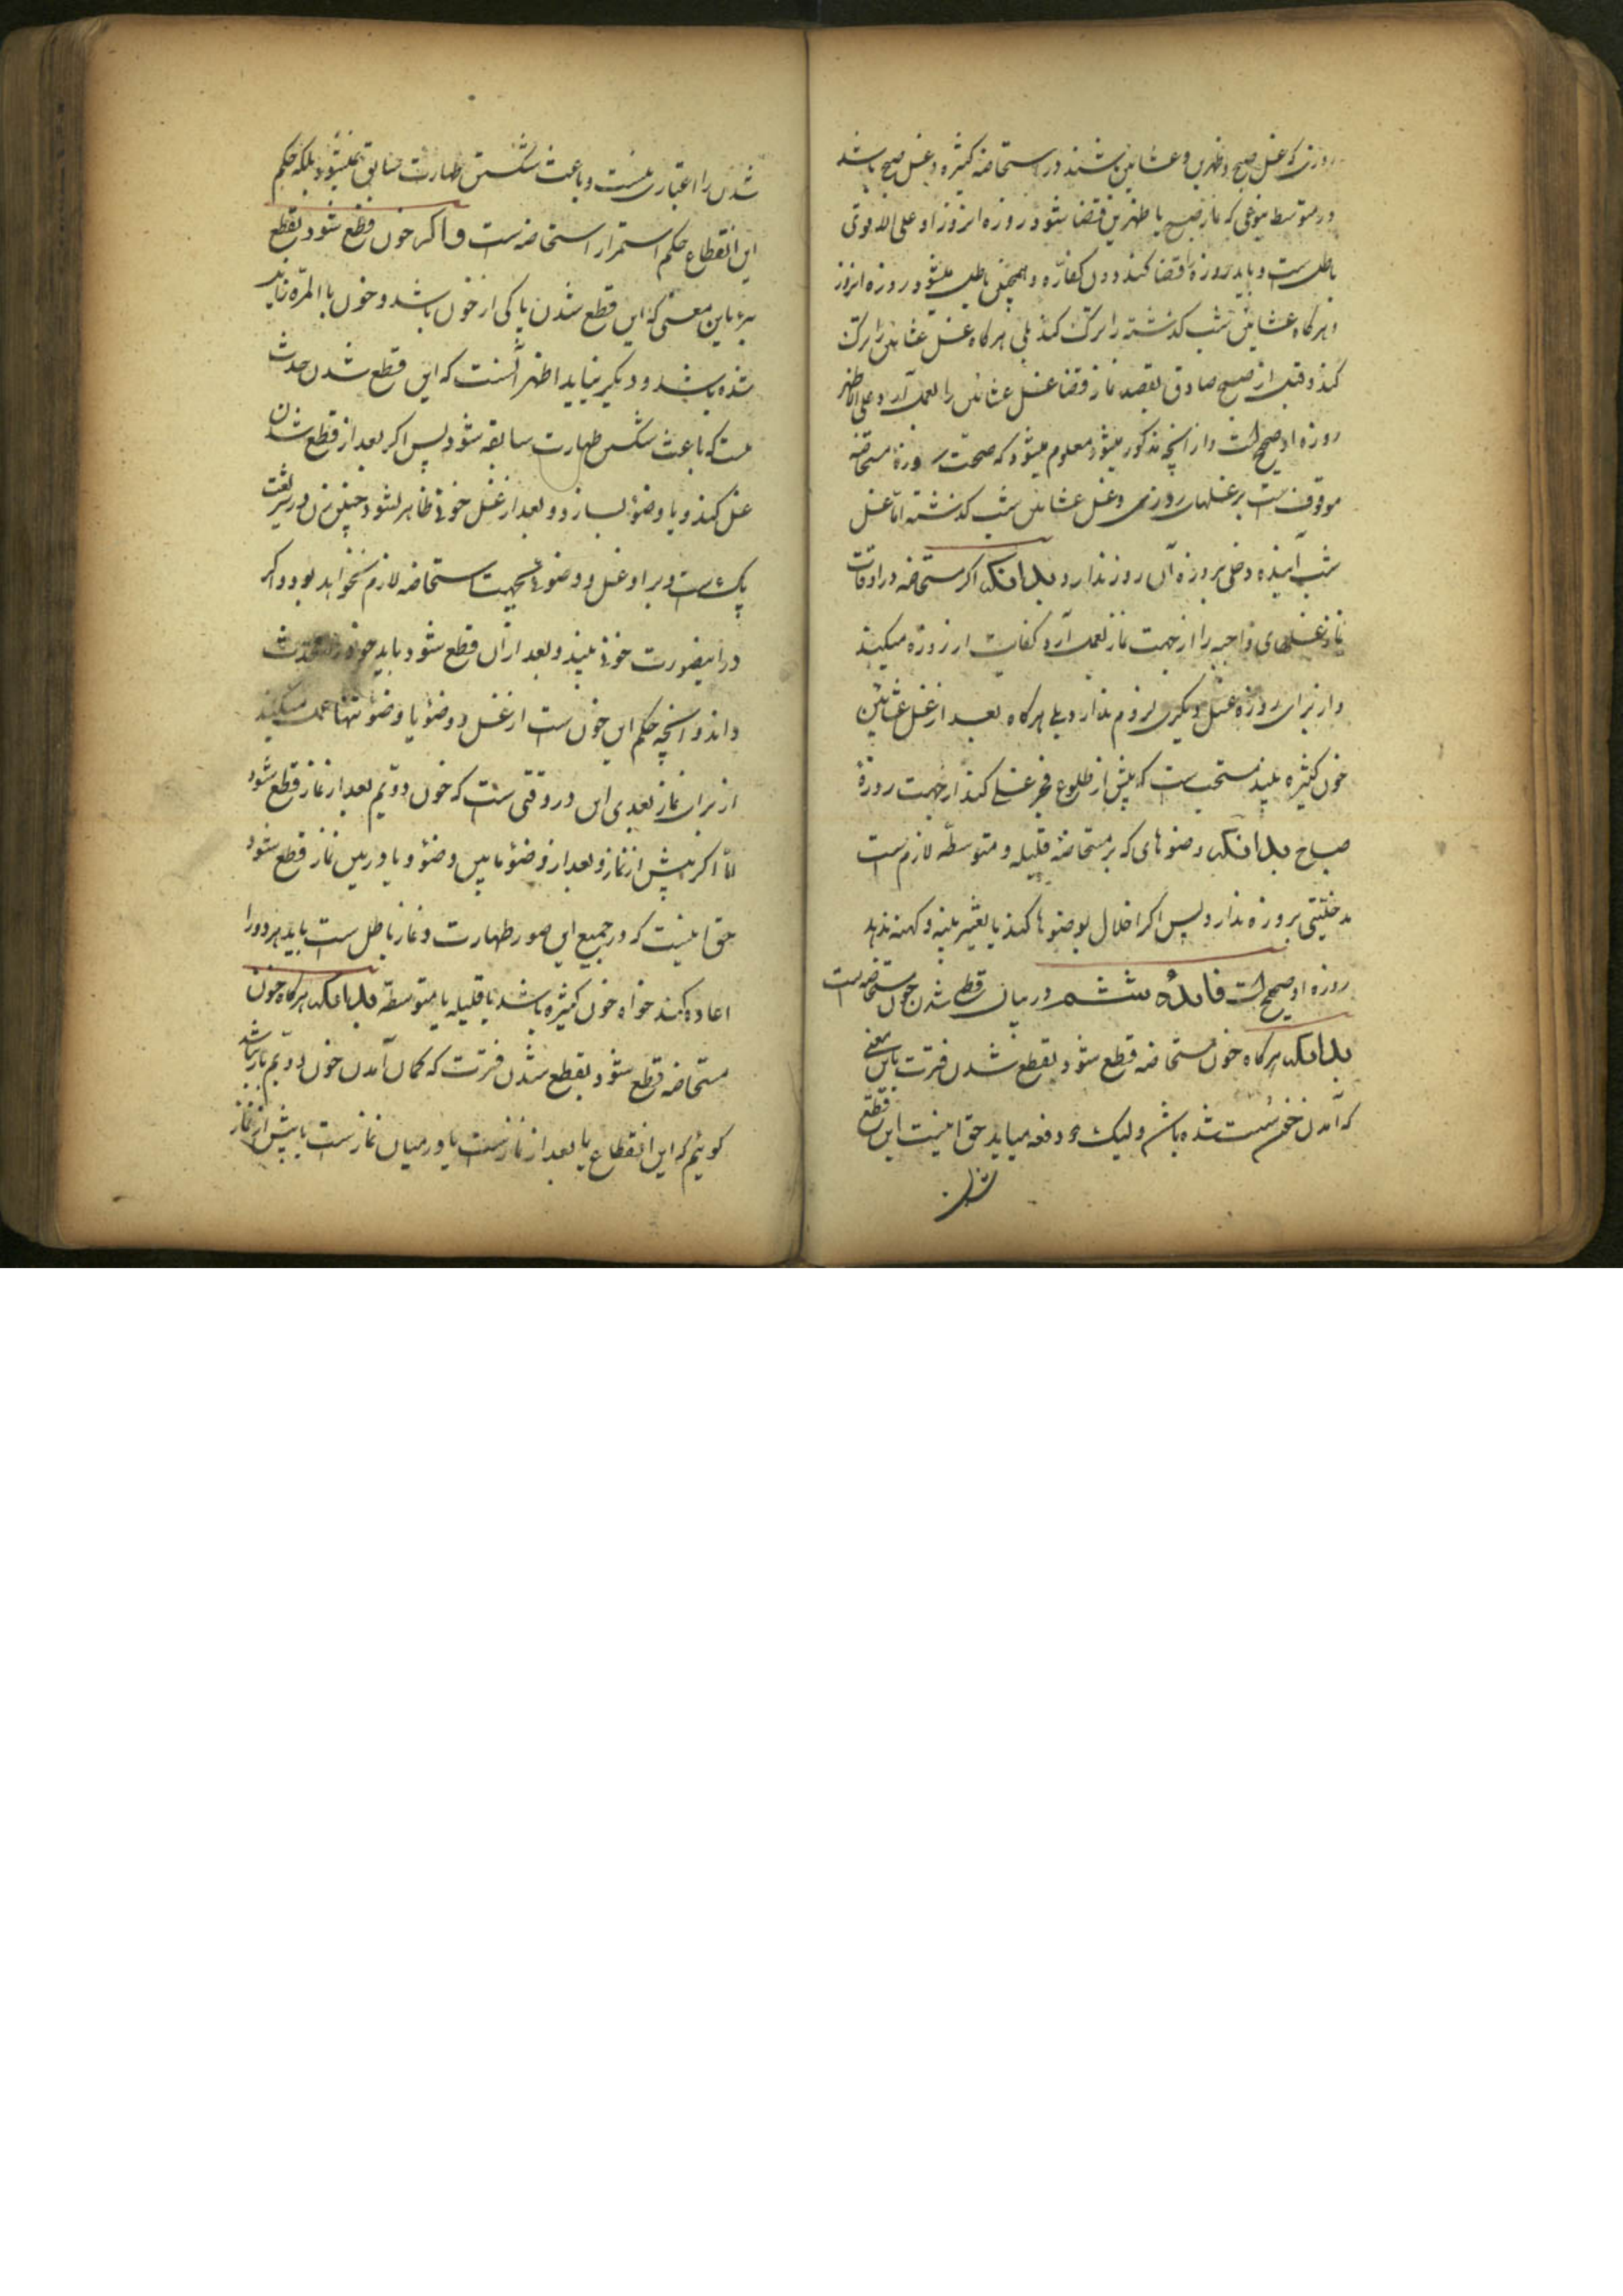 روزی که غسل صبح و ظهرین و عشائین باشند در استحاضه کثیره و غسل صبح باشد
در متوسط بنوعی که نماز صبح یا ظهرین قضا شود روزه انروز او علی الاقوی
باطل ست و باید روزه را قضا کند دون کفاره و همچنین باطل میشود روزه انروز
هر کاه عشائین شب کذشته را ترک کند بلی هر کاه غسل عشائین را ترک
کند و قبل از صبح صادق بقصد نماز قضا غسل عشائین را بعمل آرد و علی الاظهر
روزه او صحیح است و از آنچه مذکور میشود معلوم میشود که صحت روزه مستحاضه
موقوف ست بر غسلهای روزی و غسل عشائین شب کذشته اما غسل
شب آینده دخلی بروزه آن روز ندارد و بدانکه اکر مستحاضه در اوقات
نماز غسلهای واجبه را از جهت نماز بعمل آرد کفایت از روزه میکند
و از برای روزه غسل دیکری لزوم ندارد بلی هر کاه بعد از غسل عشائین
خون کثیره بیند مستحب ست که پیش از طلوع فجر غسلی کند از جهت روزهٔ
صباح بدانکه وضوهای که بر مستحاضه قلیله و متوسطه لازم ست
مدخلیتی بروزه ندارد پس اکر اخلال بوضوها کند یا تغییر پنبه و کهنه ندهد
روزه او صحیح است فائدهٔ ششم در بیان قطع شدن خون مستحاضه ست
بدانکه هر کاه خون مستحاضه قطع شود بقطع شدن فترت باین معنی
که آمدن خون سست شده باشد و لیک دفعه میاید حق اینست این قطع
شدن
شدن را اعتباری نیست و باعث شکستن طهارت سابق نمیشود بلکه حکم
این انقطاع حکم استمرار استحاضه ست و اکر خون قطع شود بقطع
برء باین معنی که این قطع شدن پاکی از خون باشد و خون با المره زایل
شده باشد و دیکر نیاید اظهر آنست که این قطع شدن حدث
ست که باعث شکستن طهارت سابقه شود پس اکر بعد از قطع شدن
غسل کند و یا وضوء بسازد و بعد از غسل خونی ظاهر نشود چنین زن در شریعت
پاک ست و بر او غسل و وضوئی بجهت استحاضه لازم نخواهد بود و اکر
در اینصورت خونی بیند و بعد از آن قطع شود باید خود را محدث
داند و آنچه حکم این خون ست از غسل و وضو یا وضو تنها عمل میکند
از برای نماز بعدی این در وقتی ست که خون دویم بعد از نماز قطع شود
اما اکر پیش از نماز و بعد از وضو یا بین وضو و یا در بین نماز قطع شود
حق اینست که در جمیع این صور طهارت و نماز باطل ست باید هر دو را
اعاده کند خواه خون کثیره باشد یا قلیله یا متوسطه بدانکه هر کاه خون
مستحاضه قطع شود بقطع شدن فترت که کمان آمدن خون دویم باز باشد
کوئیم که این انقطاع یا بعد از نماز ست یا در میان نماز ست یا پیش از نماز